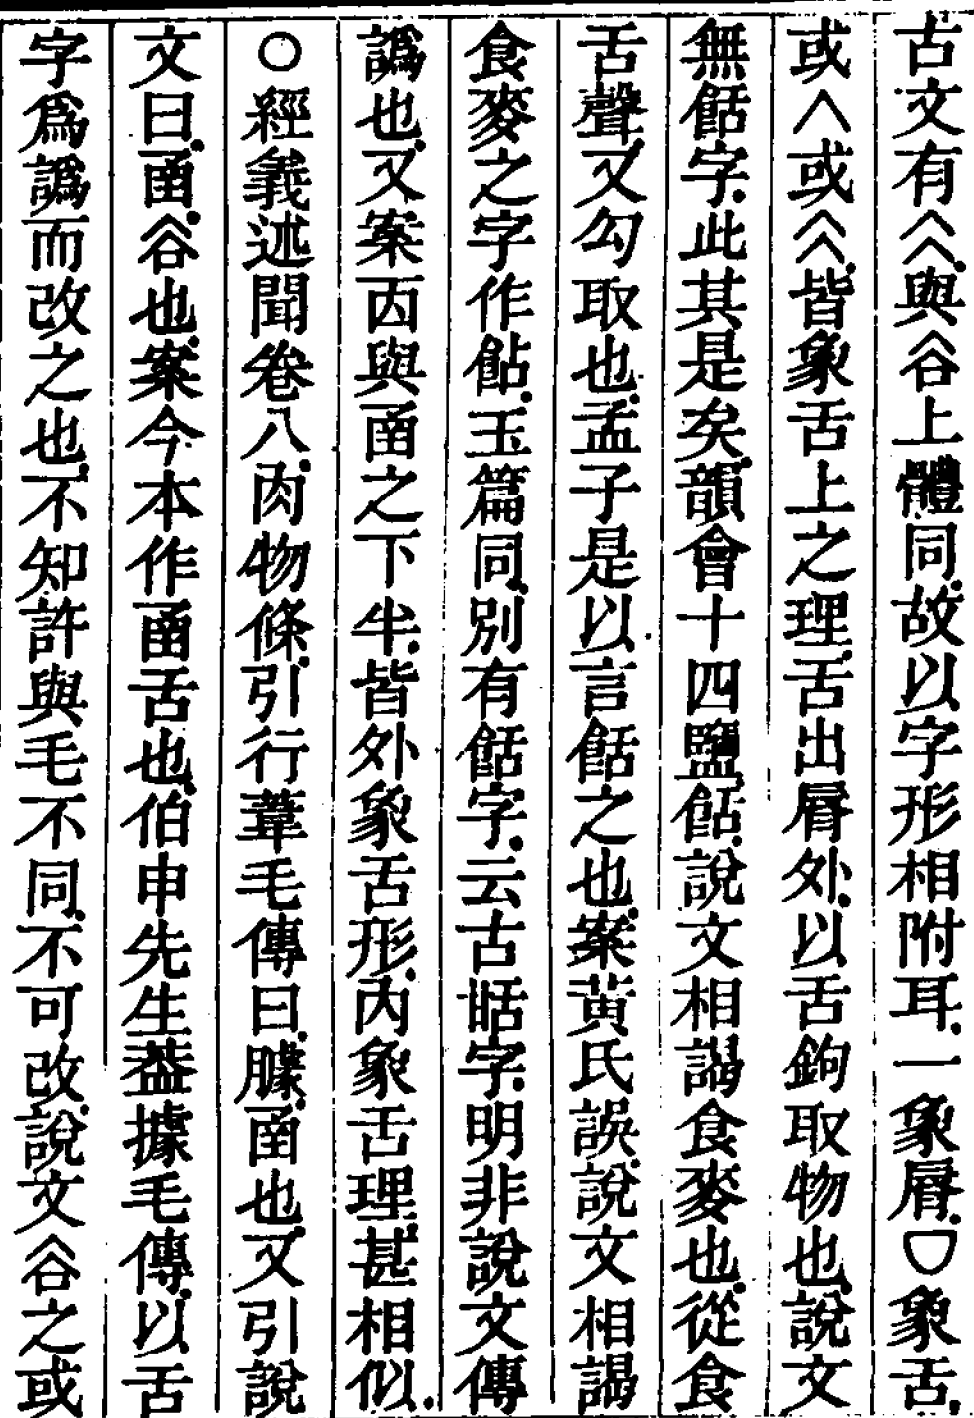 古文有𠔁與𧮫上體同故以字形相附耳一象脣𠙵象舌
或人或𠔁皆象舌上之理舌出脣外以舌鉤取物也說文
無餂字此其是矣韻會十四鹽餂說文相謁食麥也從食
舌聲又勾取也孟子是以言餂之也案黃氏誤說文相謁
食麥之字作䬯玉篇同別有餂字云古甛字明非說文傳
譌也又案㐁與圅之下半皆外象舌形內象舌理甚相似
○經義述聞卷八肉物條引行葦毛傳曰臄圅也又引說
文曰圅𧮫也案今本作圅舌也伯申先生葢據毛傳以舌
字爲譌而改之也不知許與毛不同不可改說文𧮫之或